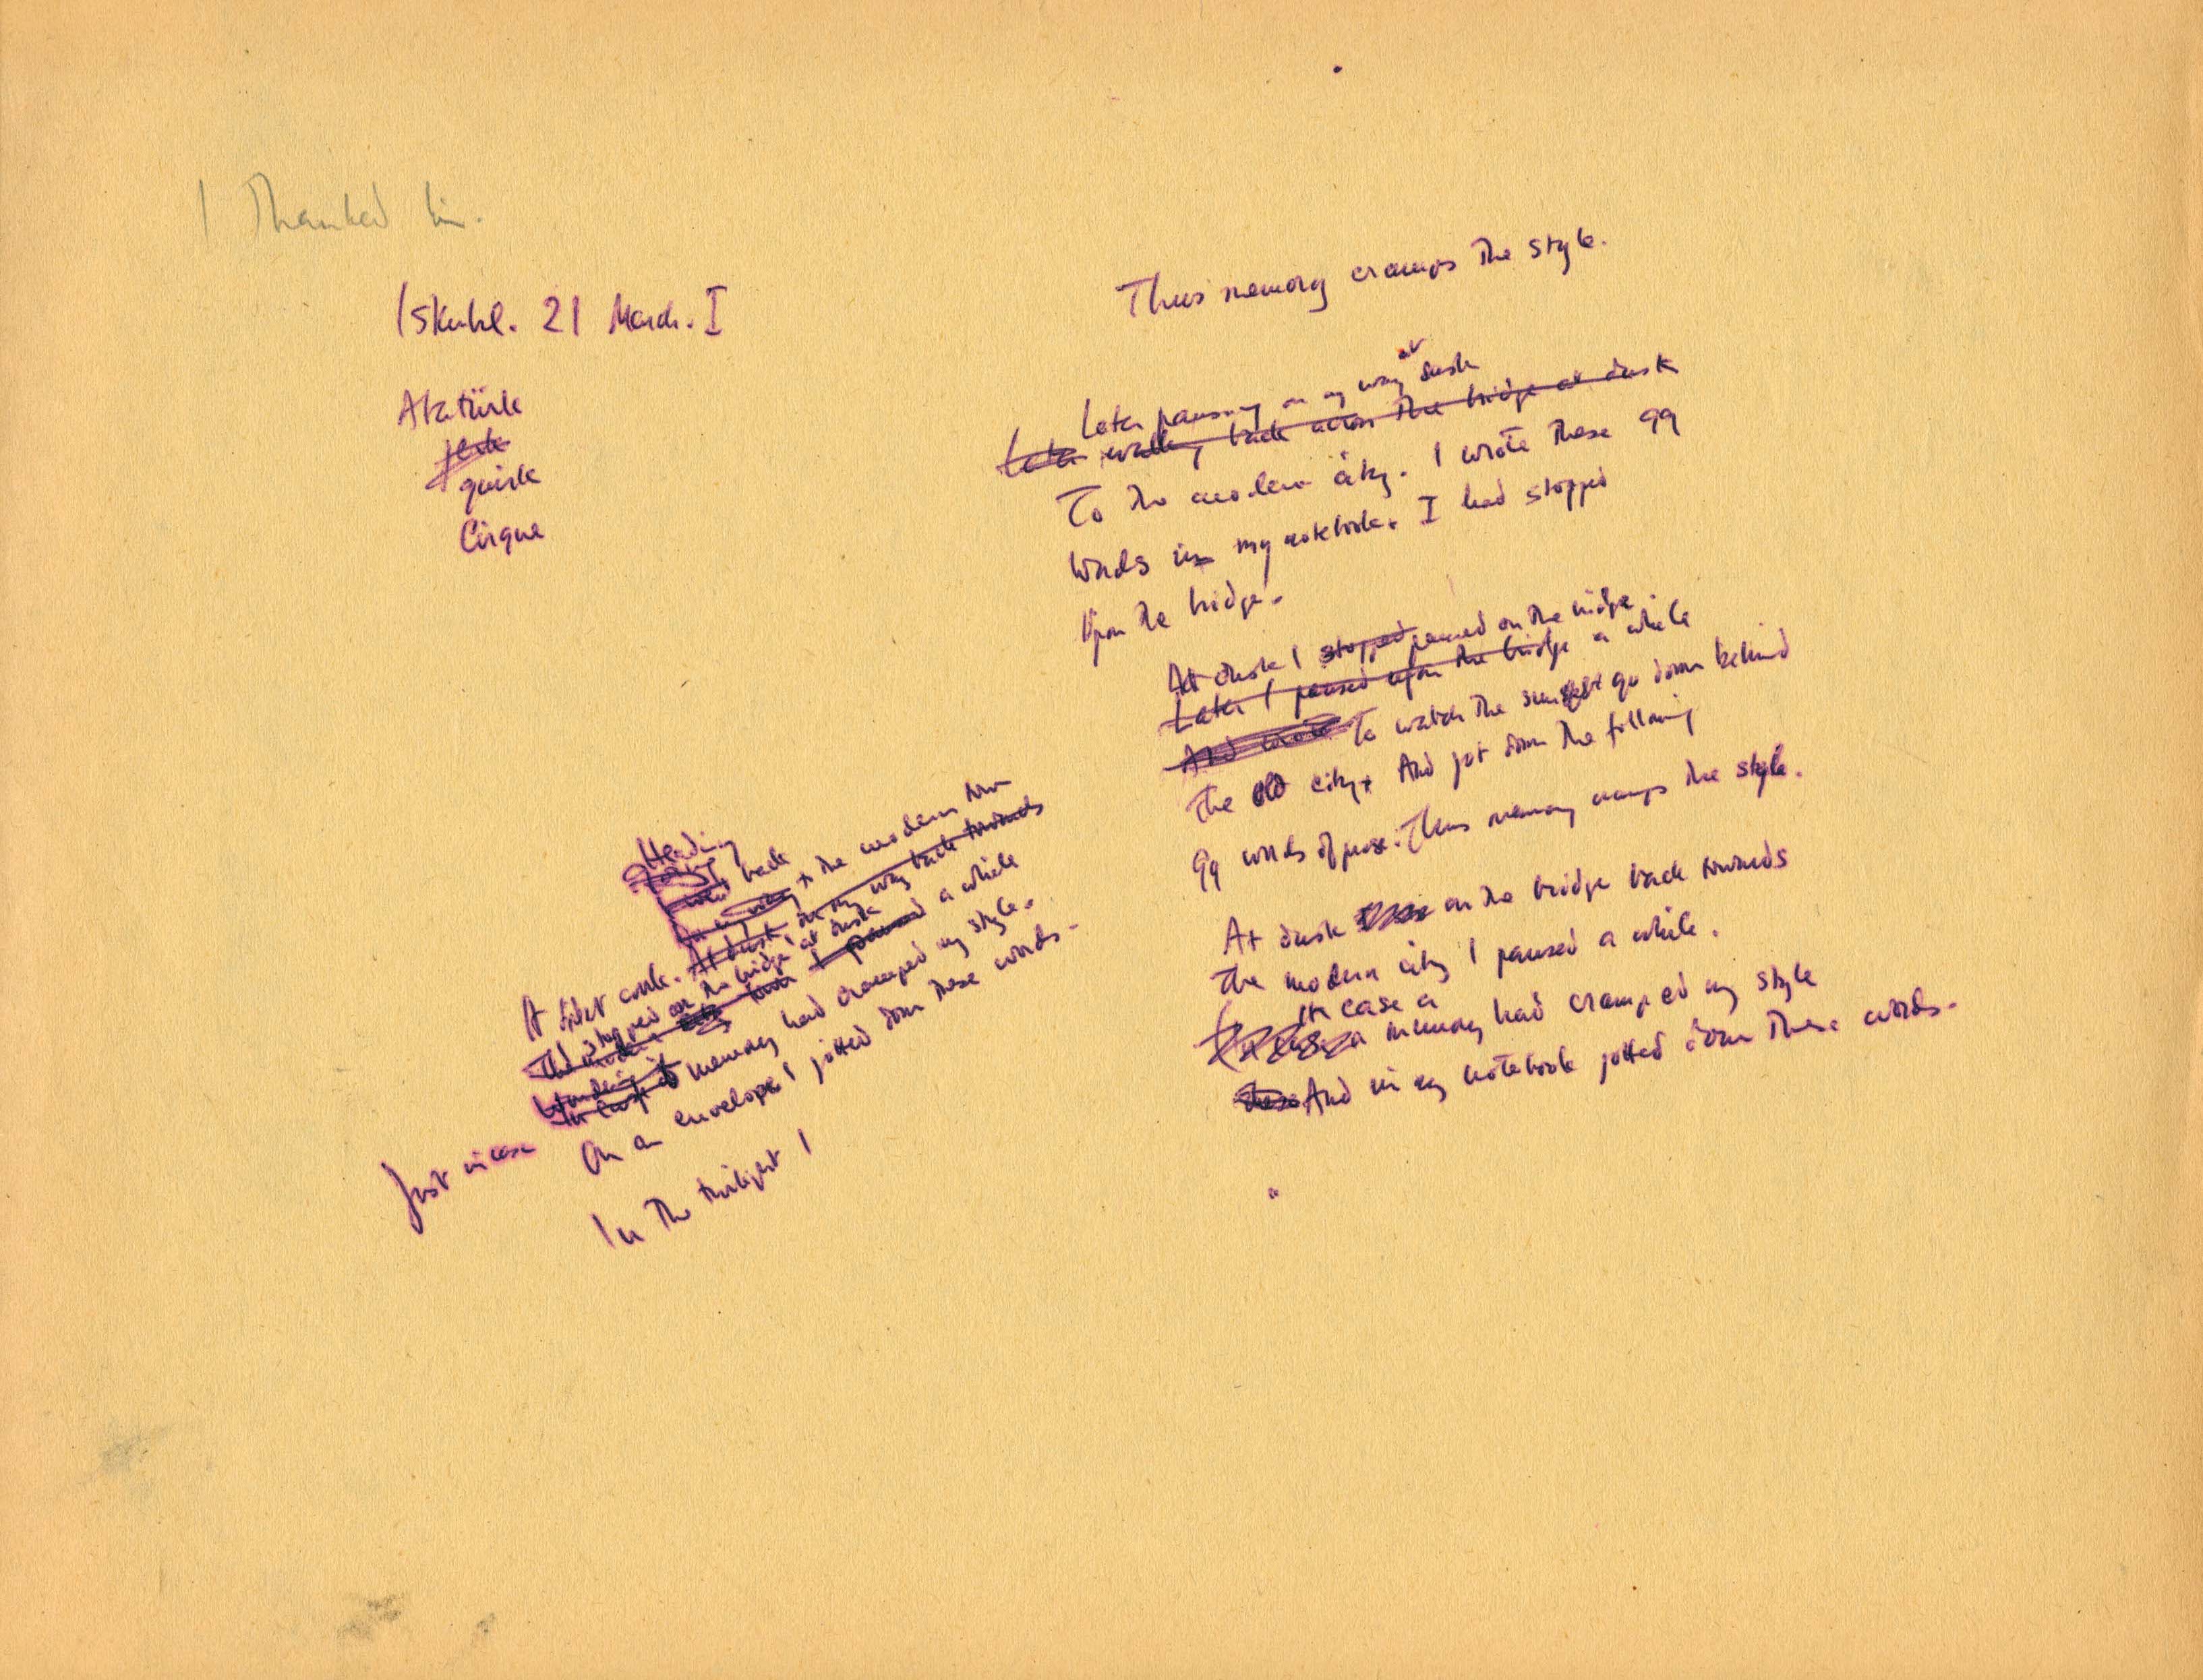 I Thanked him.
Iskubl. 21 March. I
Atatürk
quirk
Cirque
Thus memory cramps the style.
at
Later pausing on my way dusk
Later walking back across the bridge at dusk
To the modern city. I wrote these 99
Words in my notebook. I had stopped
Upon the bridge.
At dusk I stopped paused on the bridge
Later I paused upon the bridge a while
And wrote To watch the sunset go down behind
The old city, And jot down the following
99 words of prose. Thus memory cramps the style.
At dusk on the bridge back towards
The modern city I paused a while.
In case a
a memory had cramped my style
And in my notebook jotted down these words.
Heading
back
to the modern town
At dusk, on my way back towards
I stopped on the bridge at dusk
I paused a while
In case a memory had cramped my style.
Just in case
On an envelope I jotted down these words.
In the twilight I